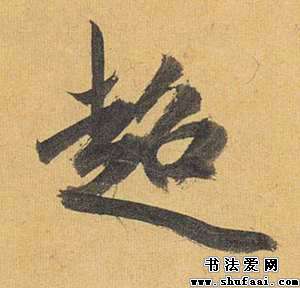 超
书法爱网
www.shufaai.com